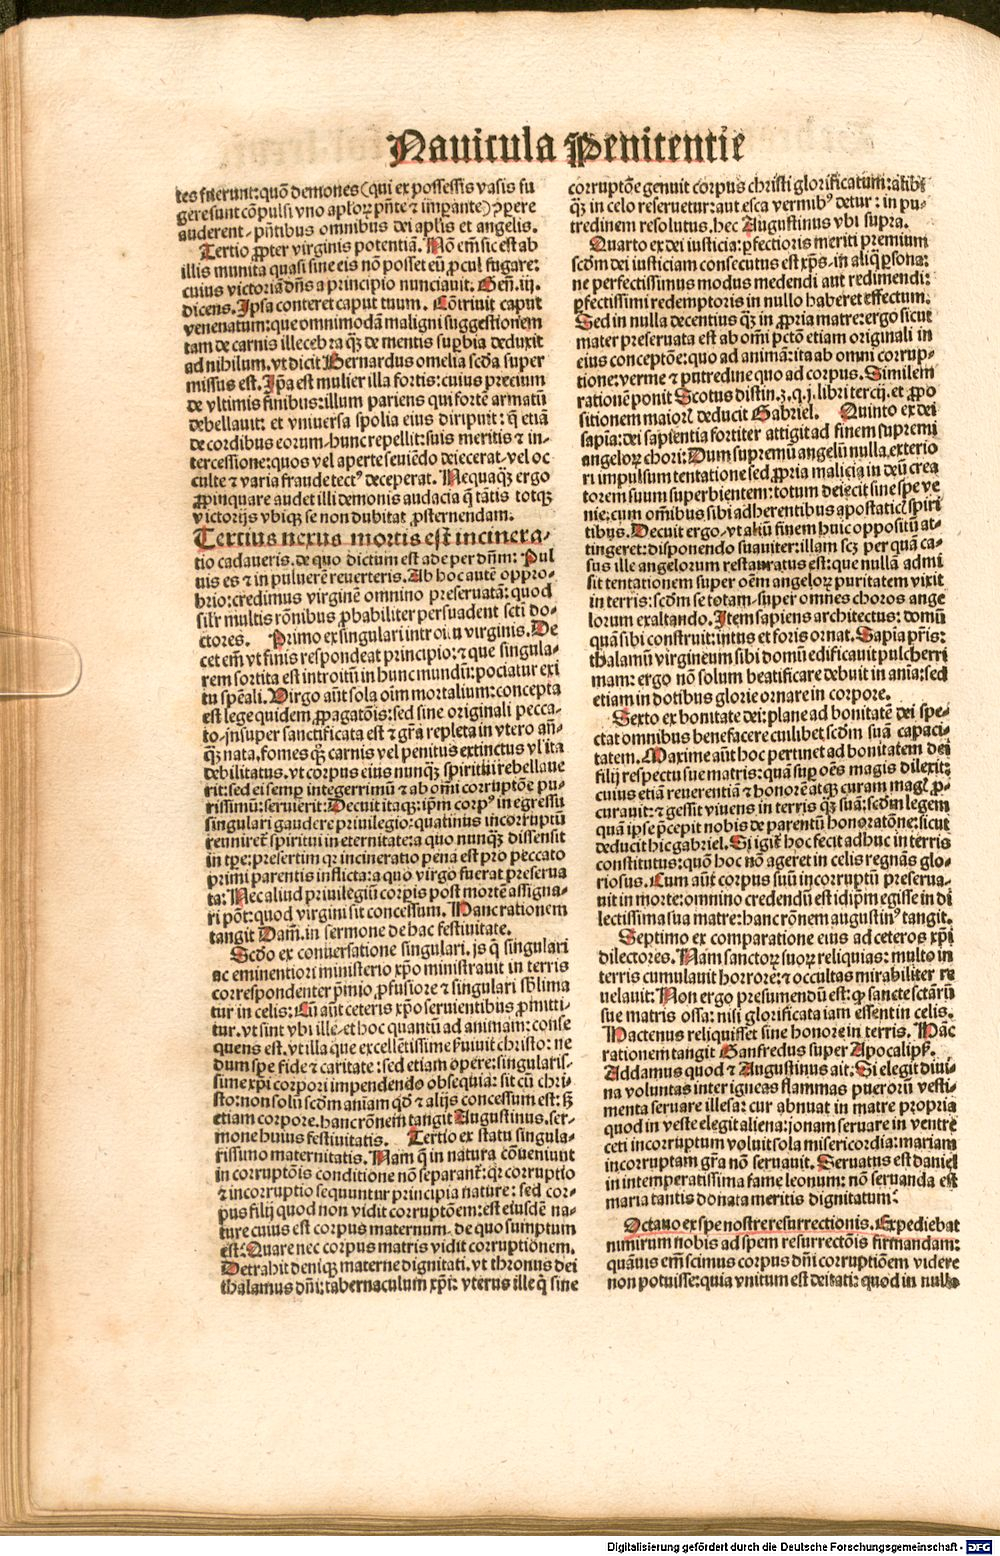 Nauicula Penitentie
tes fuerunt: quõ demones (qui ex possessis vasis fu
gere sunt cõpulsi vno apl'oꝝ pñte ⁊ imꝑante) ꝓpere
auderent, pñtibus omnibus dei aplis et angelis.
Tertio ꝓpter virginis potentiã. Nõ em̃ sic est ab
illis munita quasi sine eis nõ posset eũ ꝓcul fugare:
cuius victoriã dñs a principio nunciauit. Geñ. iij.
dicens. Ipsa conteret caput tuum. Cõtriuit caput
venenatum: que omnimodã maligni suggestionem
tam de carnis illecebra qȝ de mentis suꝑbia deduxit
ad nihilum. vt dicit Bernardus omelia scða super
missus est. Ip̃a est mulier illa fortis: cuius precium
de vltimis finibus: illum pariens qui fortẽ armatũ
debellauit: et vniuersa spolia eius diripuit: q̃ etiã
de cordibus eorum, hunc repellit: suis meritis ⁊ in-
tercessione: quos vel aperte seuiẽdo deiecerat, vel oc
culte ⁊ varia fraude tect⁹ deceperat. Nequaqȝ ergo
ꝓpinquare audet illi demonis audacia q̃ tãtis totqȝ
victorijs vbiqȝ se non dubitat ꝓsternendam.
Tertius nexus mortis est incinera-
tio cadaueris. de quo dictum est ade per dñm: Pul
uis es ⁊ in puluerẽ reuerteris. Ab hoc autẽ oppro-
brio: credimus virginẽ omnino preseruatã: quod
sil'r multis rõnibus ꝓbabiliter persuadent scti do-
ctores. Primo ex singulari introitu virginis. De
cet em̃ vt finis respondeat principio: ⁊ que singula-
rem sortita est introitũ in hunc mundũ: pociatur exi
tu spẽali. Virgo aũt sola oim mortalium: concepta
est lege quidem ꝓpagatõis: sed sine originali pecca-
to, insuper sanctificata est ⁊ gr̃a repleta in vtero añ-
qȝ nata. fomes qȝ carnis vel penitus extinctus vl' ita
debilitatus. vt corpus eius nunqȝ spiritui rebellaue
rit: sed ei semꝑ integerrimũ ⁊ ab omi corruptõe pu-
rissimũ: seruierit: Decuit itaqȝ: ip̃m corp⁹ in egressu
singulari gaudere priuilegio: quatinus incorruptũ
reuniret̃ spiritui in eternitate: a quo nunqȝ dissensit
in tp̃e: presertim qꝛ incineratio pena est pro peccato
primi parentis inflicta: a quo virgo fuerat preserua
ta: Nec aliud priuilegiũ corpis post mortẽ assigna-
ri põt: quod virgini sit concessum. Hanc rationem
tangit Dam̃. in sermone de hac festiuitate.
Scðo ex conuersatione singulari. is q̃ singulari
ac eminentiori ministerio xp̃o ministrauit in terris
correspondenter p̃mio ꝓfusiore ⁊ singulari sb̃lima
tur in celis: Cũ aũt ceteris xp̃o seruientibus ꝓmitti-
tur. vt sint vbi ille, et hoc quantũ ad animam: conse
quens est. vt illa que excellẽtissime ẜuiuit christo: ne
dum spe fide ⁊ caritate: sed etiam opere: singularis-
sime xp̃i corpori impendendo obsequia: sit cũ chri-
sto: non solũ scðm aniam qð ⁊ alijs concessum est: sȝ
etiam corpore. hanc rõnem tangit Augustinus. ser-
mone huius festiuitatis. Tertio ex statu singula-
rissimo maternitatis. Nam q̃ in natura cõueniunt
in corruptõis conditione nõ separant̃: qꝛ corruptio
⁊ incorruptio sequuntur principia nature: sed cor-
pus filij quod non vidit corruptõem: est eiusdẽ na-
ture cuius est corpus maternum. de quo sumptum
est: Quare nec corpus matris vidit corruptionem.
Detrahit deniqȝ materne dignitati. vt thronus dei
thalamus dñi: tabernaculum xp̃i: vterus ille q̃ sine
corruptõe genuit corpus christi glorificatum: alibi
qȝ in celo reseruetur: aut esca vermib⁹ detur: in pu-
tredinem resolutus. hec Augustinus vbi supra.
Quarto ex dei iusticia: ꝑfectioris meriti premium
scðm dei iusticiam consecutus est xp̃s, in aliq̃ ꝑsona:
ne perfectissimus modus medendi aut redimendi:
ꝑfectissimi redemptoris in nullo haberet effectum.
Sed in nulla decentius qȝ in ꝓpria matre: ergo sicut
mater preseruata est ab omi pctõ etiam originali in
eius conceptõe: quo ad animã: ita ab omni corrup-
tione: verme ⁊ putredine quo ad corpus. Similem
rationẽ ponit Scotus distin. 3. q. j. libri tercij. et ꝓpo
sitionem maiorẽ deducit Gabriel. Quinto ex dei
sapia: dei sapientia fortiter attigit ad finem supremi
angeloꝝ chori: Dum supremũ angelũ nulla exterio
ri impulsum tentatione sed ꝓpria malicia in deũ crea
torem suum superbientem: totum deiecit sine spe ve
nie: cum omĩbus sibi adherentibus apostaticis spiri
tibus. Decuit ergo, vt aliũ finem huic oppositũ at-
tingeret: disponendo suauiter: illam scȝ per quã ca-
sus ille angelorum restauratus est: que nullã admi
sit tentationem super oẽm angeloꝝ puritatem vixit
in terris: scðm se totam, super omnes choros ange
lorum exaltando. Item sapiens architectus: domũ
quã sibi construit: intus et foris ornat. Sapia pr̃is:
thalamũ virgineum sibi domũ edificauit pulcherri
mam: ergo nõ solum beatificare debuit in aĩa: sed
etiam in dotibus glorie ornare in corpore.
Sexto ex bonitate dei: plane ad bonitatẽ dei spe-
ctat omnibus benefacere cuilibet scðm suã capaci-
tatem. Maxime aũt hoc pertinet ad bonitatem dei
filij respectu sue matris: quã suꝑ oẽs magis dilexit:
cuius etiã reuerentiã ⁊ honorẽ atqȝ curam magl' ꝓ-
curauit: ⁊ gessit viuens in terris qȝ suã: scðm legem
quã ipse p̃cepit nobis de parentũ honoratõne: sicut
deducit hic gabriel. Si igit̃ hoc fecit adhuc in terris
constitutus: quõ hoc nõ ageret in celis regnãs glo-
riosus. Cum aũt corpus suũ incorruptũ preserua-
uit in morte: omnino credendũ est idip̃m egisse in di
lectissima sua matre: hanc rõnem augustin⁹ tangit.
Septimo ex comparatione eius ad ceteros xp̃i
dilectores. Nam sanctoꝝ suoꝝ reliquias: multo in
terris cumulauit horrore: ⁊ occultas mirabiliter re
uelauit: Non ergo presumendũ est: ꝙ sancte sctãrũ
sue matris ossa: nisi glorificata iam essent in celis.
Hactenus reliquisset sine honore in terris. Hãc
rationem tangit Ganfredus super Apocalips̃.
Addamus quod ⁊ Augustinus ait. Si elegit diui-
na voluntas inter igneas flammas pueroru vesti-
menta seruare illesa: cur abnuat in matre propria
quod in veste elegit aliena: jonam seruare in ventre
ceti incorruptum voluit sola misericordia: mariam
incorruptam gr̃a nõ seruauit. Seruatus est daniel
in intemperatissima fame leonum: nõ seruanda est
maria tantis donata meritis dignitatum?
Octauo ex spe nostre resurrectionis. Expediebat
nimirum nobis ad spem resurrectõis firmandam:
quãuis em̃ scimus corpus dñi corruptiõem videre
non potuisse: quia vnitum est deitati: quod in nullo
Digitalisierung gefördert durch die Deutsche Forschungsgemeinschaft - DFG